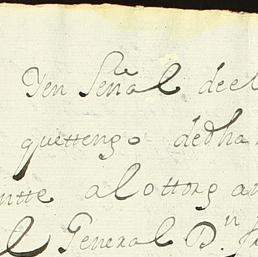 Yen Señal deel
quettengo dedha
ntte alottorg an
l General D.n